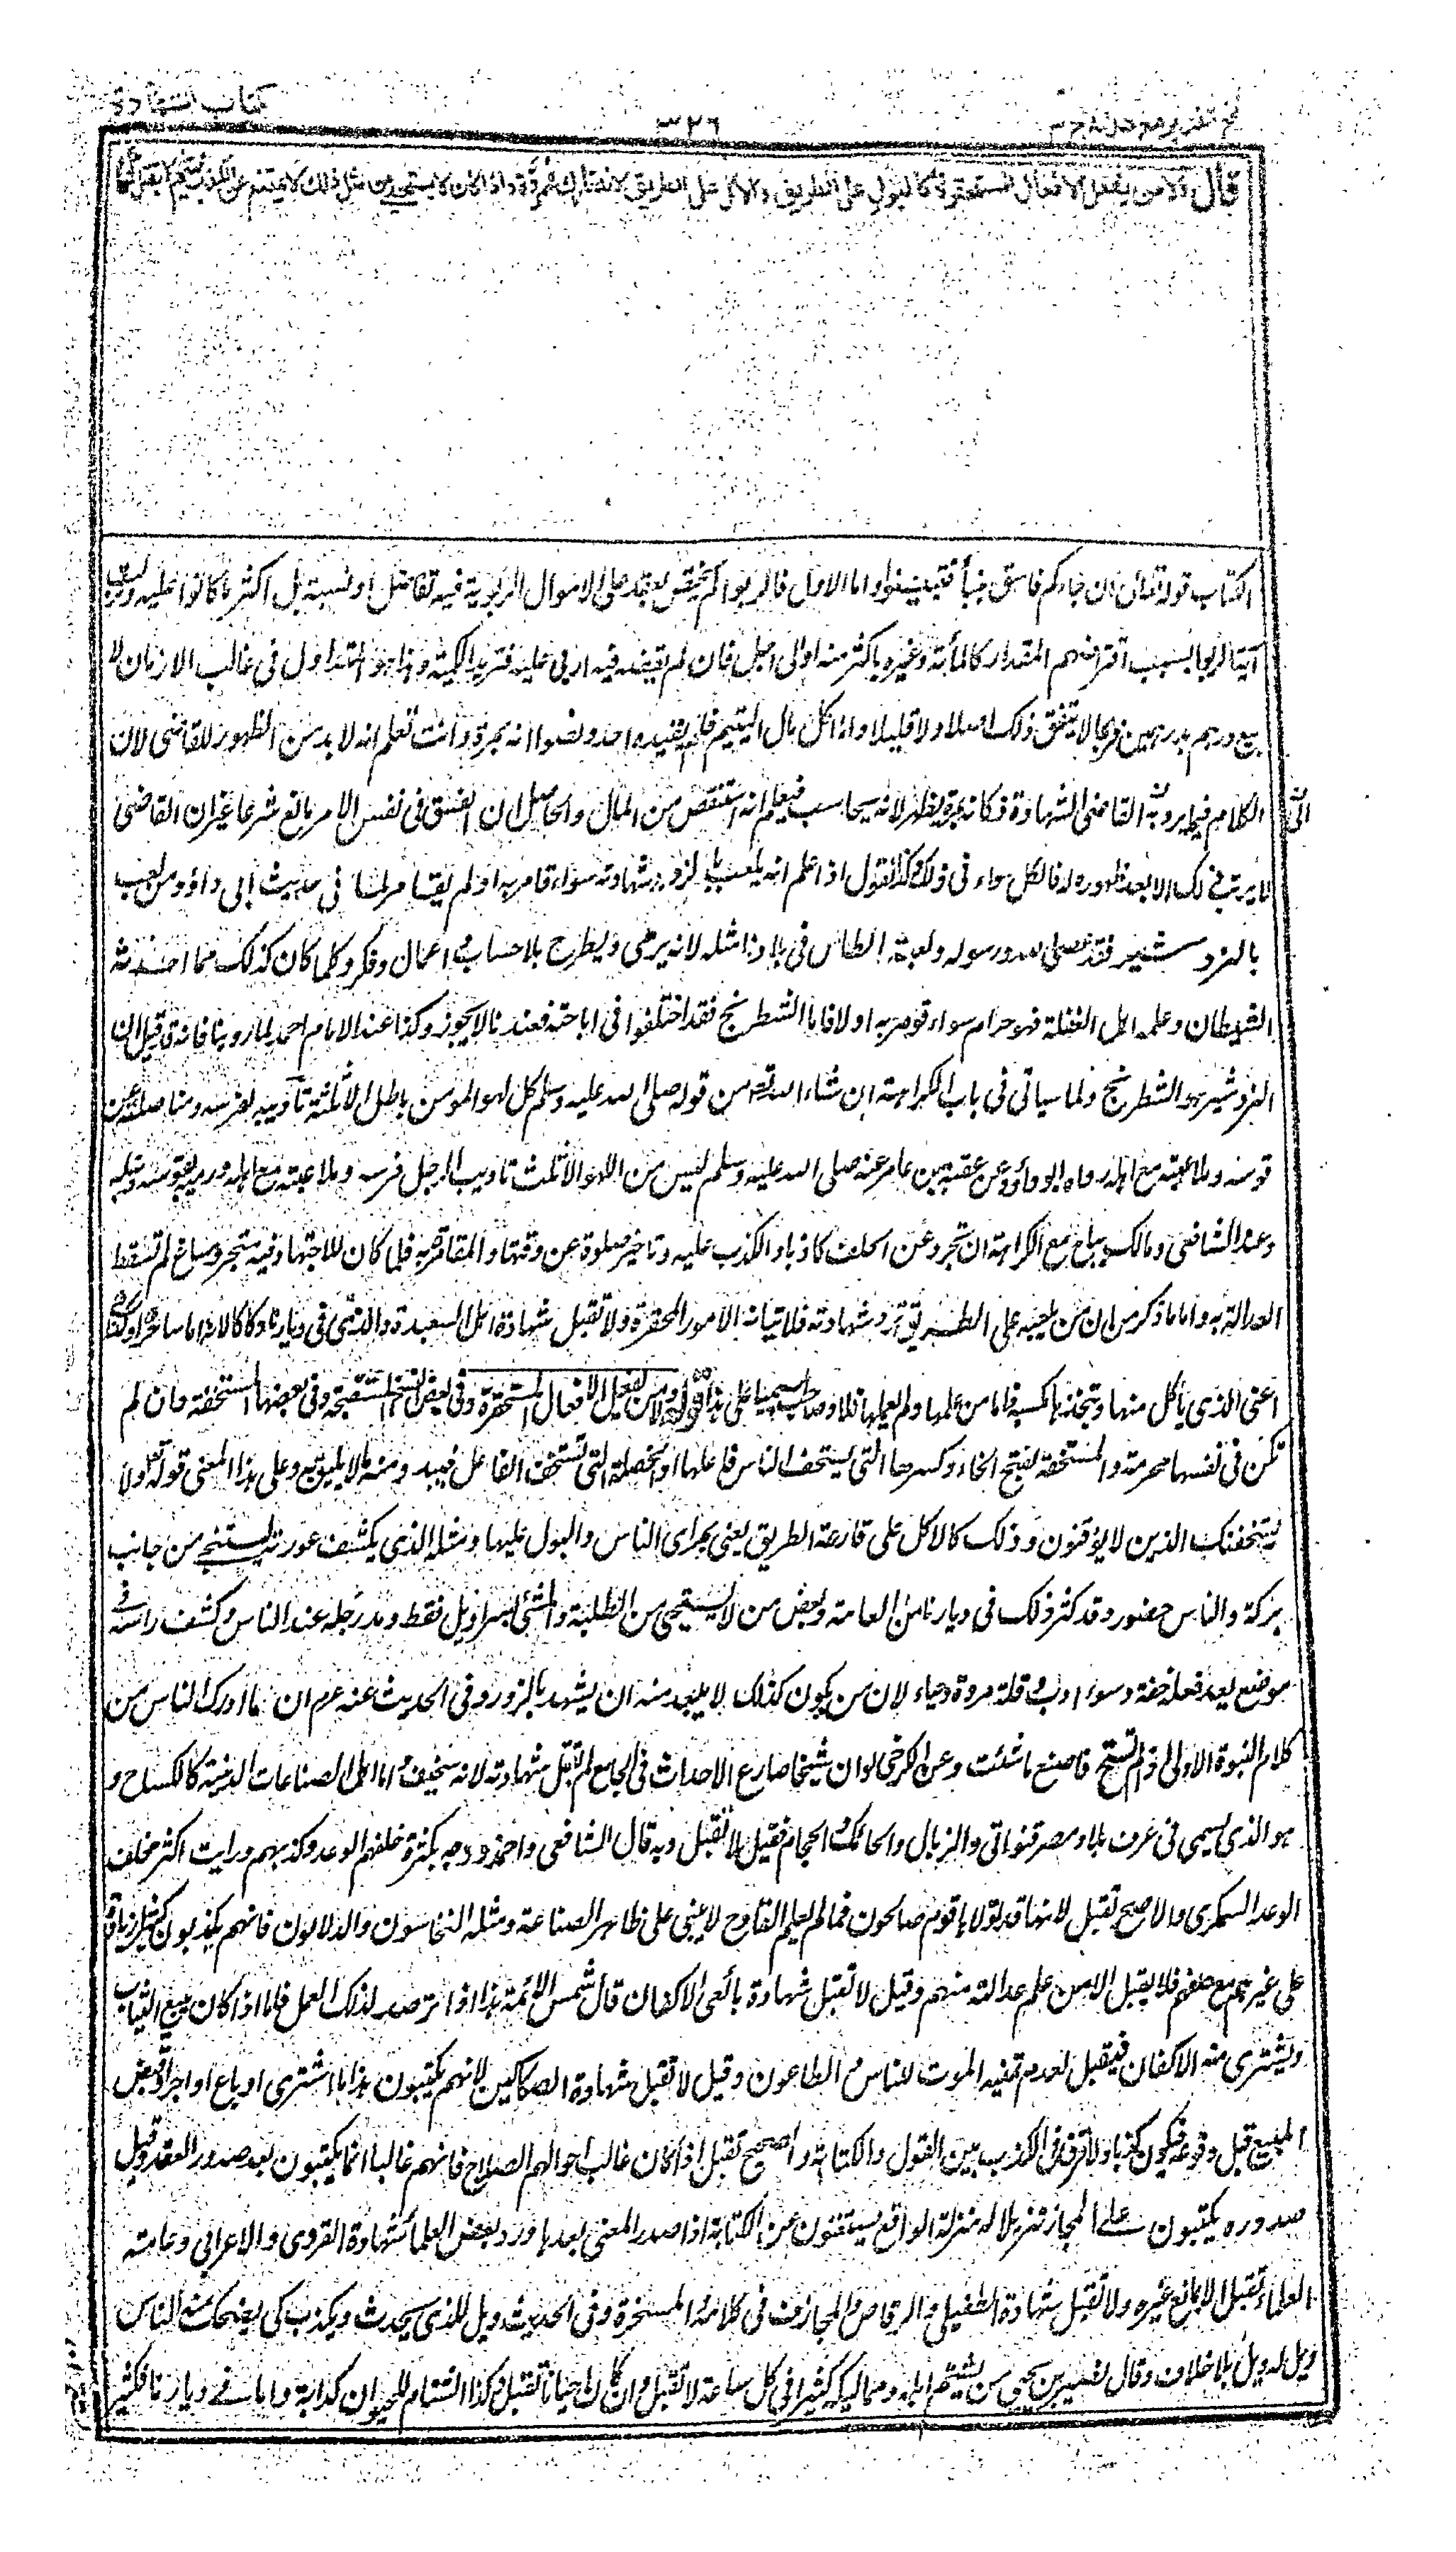 فتح القدير مع هدايه ج ٣
٣٢٦
كتاب الشهادة
قال ولا من يفعل الافعال المستحقرة كالبول على الطريق والاكل على الطريق لانه تارك للمروة واذا كان لا يستحيى عن مثل ذلك لا يمتنع عن الكذب فيتهم
الكتاب قوله تعالى ان جاءكم فاسق بنبأ فتبينوا واما الاول فالربوا لم يختص بعقد على الاموال الربوية فيه تفاضل او نسية بل اكثر ما كانوا عليه
آية الربوا بسبب اقراضهم المقدار كالمأته وغيره باكثر منه اولى اجل فان لم يقضه فيه اربى عليه فتزيد الكمية وهذا هو المتداول فى غالب الازمان لا
بيع درهم بدرهمين فربما لا يتفق ذلك اصلا ولا قليلا واما اكل مال اليتيم فلم يقيده احد ونصوا انه بمرة وانت تعلم انه لا بد من الظهور للقاضى لان
الكلام فيما يرد به القاضى الشهادة فكانه بمرة يظهر لانه يحاسب فيعلم انه استنقص من المال والحاصل ان الفسق فى نفس الامر مانع شرعا غير ان القاضى
لا يرتب ذلك الا بعد ظهوره له فالكل سواء فى ذلك ولذا نقول اذا علم انه يلعب بالنرد رد شهادته سواء قامر به او لم يقامر لما فى حديث ابى داؤد من لعب
بالنرد شير فقد عصى الله ورسوله ولعبة الطاب فى بلادنا مثله لانه يرمى ويطرح بلا حساب واعمال وفكر وكلما كان كذلك مما احدثه
الشيطان وعمله اهل الغفلة فهو حرام سواء قومر به او لا فاما الشطرنج فقد اختلفوا فى اباحته فعندنا لا يجوز وكذا عند الامام احمد لما روينا فانه قد قيل ان
النردشير هو الشطرنج ولما سياتى فى باب الكراهة ان شاء الله تعالى من قوله صلى الله عليه وسلم كل لهو المومن باطل الا ثلثة تأديبه لفرسه ومناضلته عن
قوسه وملاعبته مع اهله رواه ابو داؤد عن عقبة بن عامر عنه صلى الله عليه وسلم ليس من اللهو الا ثلث تاديب الرجل فرسه وملاعبته مع اهله ورميه بقوسه ونبله
وعند الشافعى ومالك يباح مع الكراهة ان تجرد عن الحلف كاذبا والكذب عليه وتاخير صلوة عن وقتها والمقامرة به فلما كان للاجتهاد فيه مساغ لم تسقط
العدالة به واما ما ذكر من ان من يلعبه على الطريق ترد شهادته فلاتيانه الامور المحقرة ولا تقبل شهادة اهل الشعبذة والذى فى ديارنا دكاكا لانه اما ساحر او كذاب
اعنى الذى يأكل منها ويتخذها مكسبه فاما من علمها ولم يعملها فلا وصاحب السيميا على هذا قوله ولا من يفعل الافعال المستحقرة وفى بعض النسخ المستقبحة وفى بعضها المستخفة وان لم
تكن فى نفسها محرمة والمستخفة بفتح الخاء وكسرها التى يستخف الناس فاعلها او الخصلة التى تستخف الفاعل فيبدو منه ما لا يليق وعلى هذا المعنى قوله تعالى ولا
يستخفنك الذين لا يوقنون وذلك كالاكل على قارعة الطريق يعنى بمراى الناس والبول عليها ومثله الذى يكشف عورته ليستنجى من جانب
بركة والناس حضور وقد كثر ذلك فى ديارنا من العامة وبعض من لا يستحيى من الطلبة والمشى بسراويل فقط ومد رجله عند الناس وكشف راسه فى
موضع يعد فعله خفة وسوء ادب وقلة مروة وحياء لان من يكون كذلك لا يبعد منه ان يشهد بالزور وفى الحديث عنه عم ان مما ادرك الناس من
كلام النبوة الاولى اذا لم تستح فاصنع ما شئت وعن الكرخى لو ان شيخا صارع الاحداث فى الجامع لم تقبل شهادته لانه سخيف واما اهل الصناعات الدنية كالكساح و
هو الذى يسمى فى عرف بلاد مصر قنواتى والزبال والحائك والحجام فقيل لا تقبل وبه قال الشافعى واحمد ووجه بكثرة خلفهم الوعد وكذبهم ورايت اكثر مخلف
الوعد السمكرى والاصح تقبل لانها قد تولاها قوم صالحون فما لم يعلم القادح لا يبنى على ظاهر الصناعة ومثله النخاسون والدلالون فانهم يكذبون كثيرا زيادة
على غيرهم مع حلفهم فلا يقبل الا من علم عدالته منهم وقيل لا تقبل شهادة بائعى الاكفان قال شمس الائمة هذا اذا ترصد لذلك العمل فاما اذا كان يبيع الثياب
ويشترى منه الاكفان فيقبل لعدم تمنيه الموت للناس والطاعون وقيل لا تقبل شهادة الصكاكين لانهم يكتبون هذا ما اشترى او باع او اجر وقبض
المبيع قبل وقوعه فيكون كذبا ولا فرق فى الكذب بين القول والكتابة والصحيح تقبل اذا كان غالب احوالهم الصلاح فانهم غالبا انما يكتبون بعد صدور العقد وقبل
صدوره يكتبون على المجاز تنزيلا له منزلة الواقع يستغنون عن الكتابة اذا صدر المعنى بعدها ورد بعض العلماء شهادة القروى والاعرابى وعامة
العلماء تقبل الا لمانع غيره ولا تقبل شهادة الطفيلى والرقاص والمجازف فى كلامه والمسخرة وفى الحديث ويل للذى يحدث ويكذب كى يضحك منه الناس
ويل له ويل بلا خلاف وقال نصير بن يحيى من يشتم اهله ومماليكه كثيرا فى كل ساعة لا تقبل وان كان احيانا تقبل وكذا الشتام للحيوان كدابة واما فى ديارنا فكثير